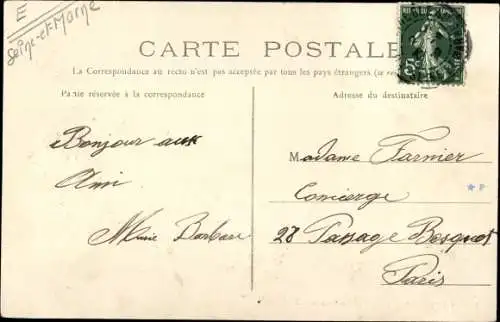 E
Seine-et-Marne
CARTE POSTALE
La Correspondance au recto n'est pas acceptée par tous les pays étrangers (se
Partie réservée à la correspondance
Adresse du destinataire
Bonjour aux
Ami
Marie Barbare
Madame Farnier
Concierge
28 Passage Bosquet
Paris